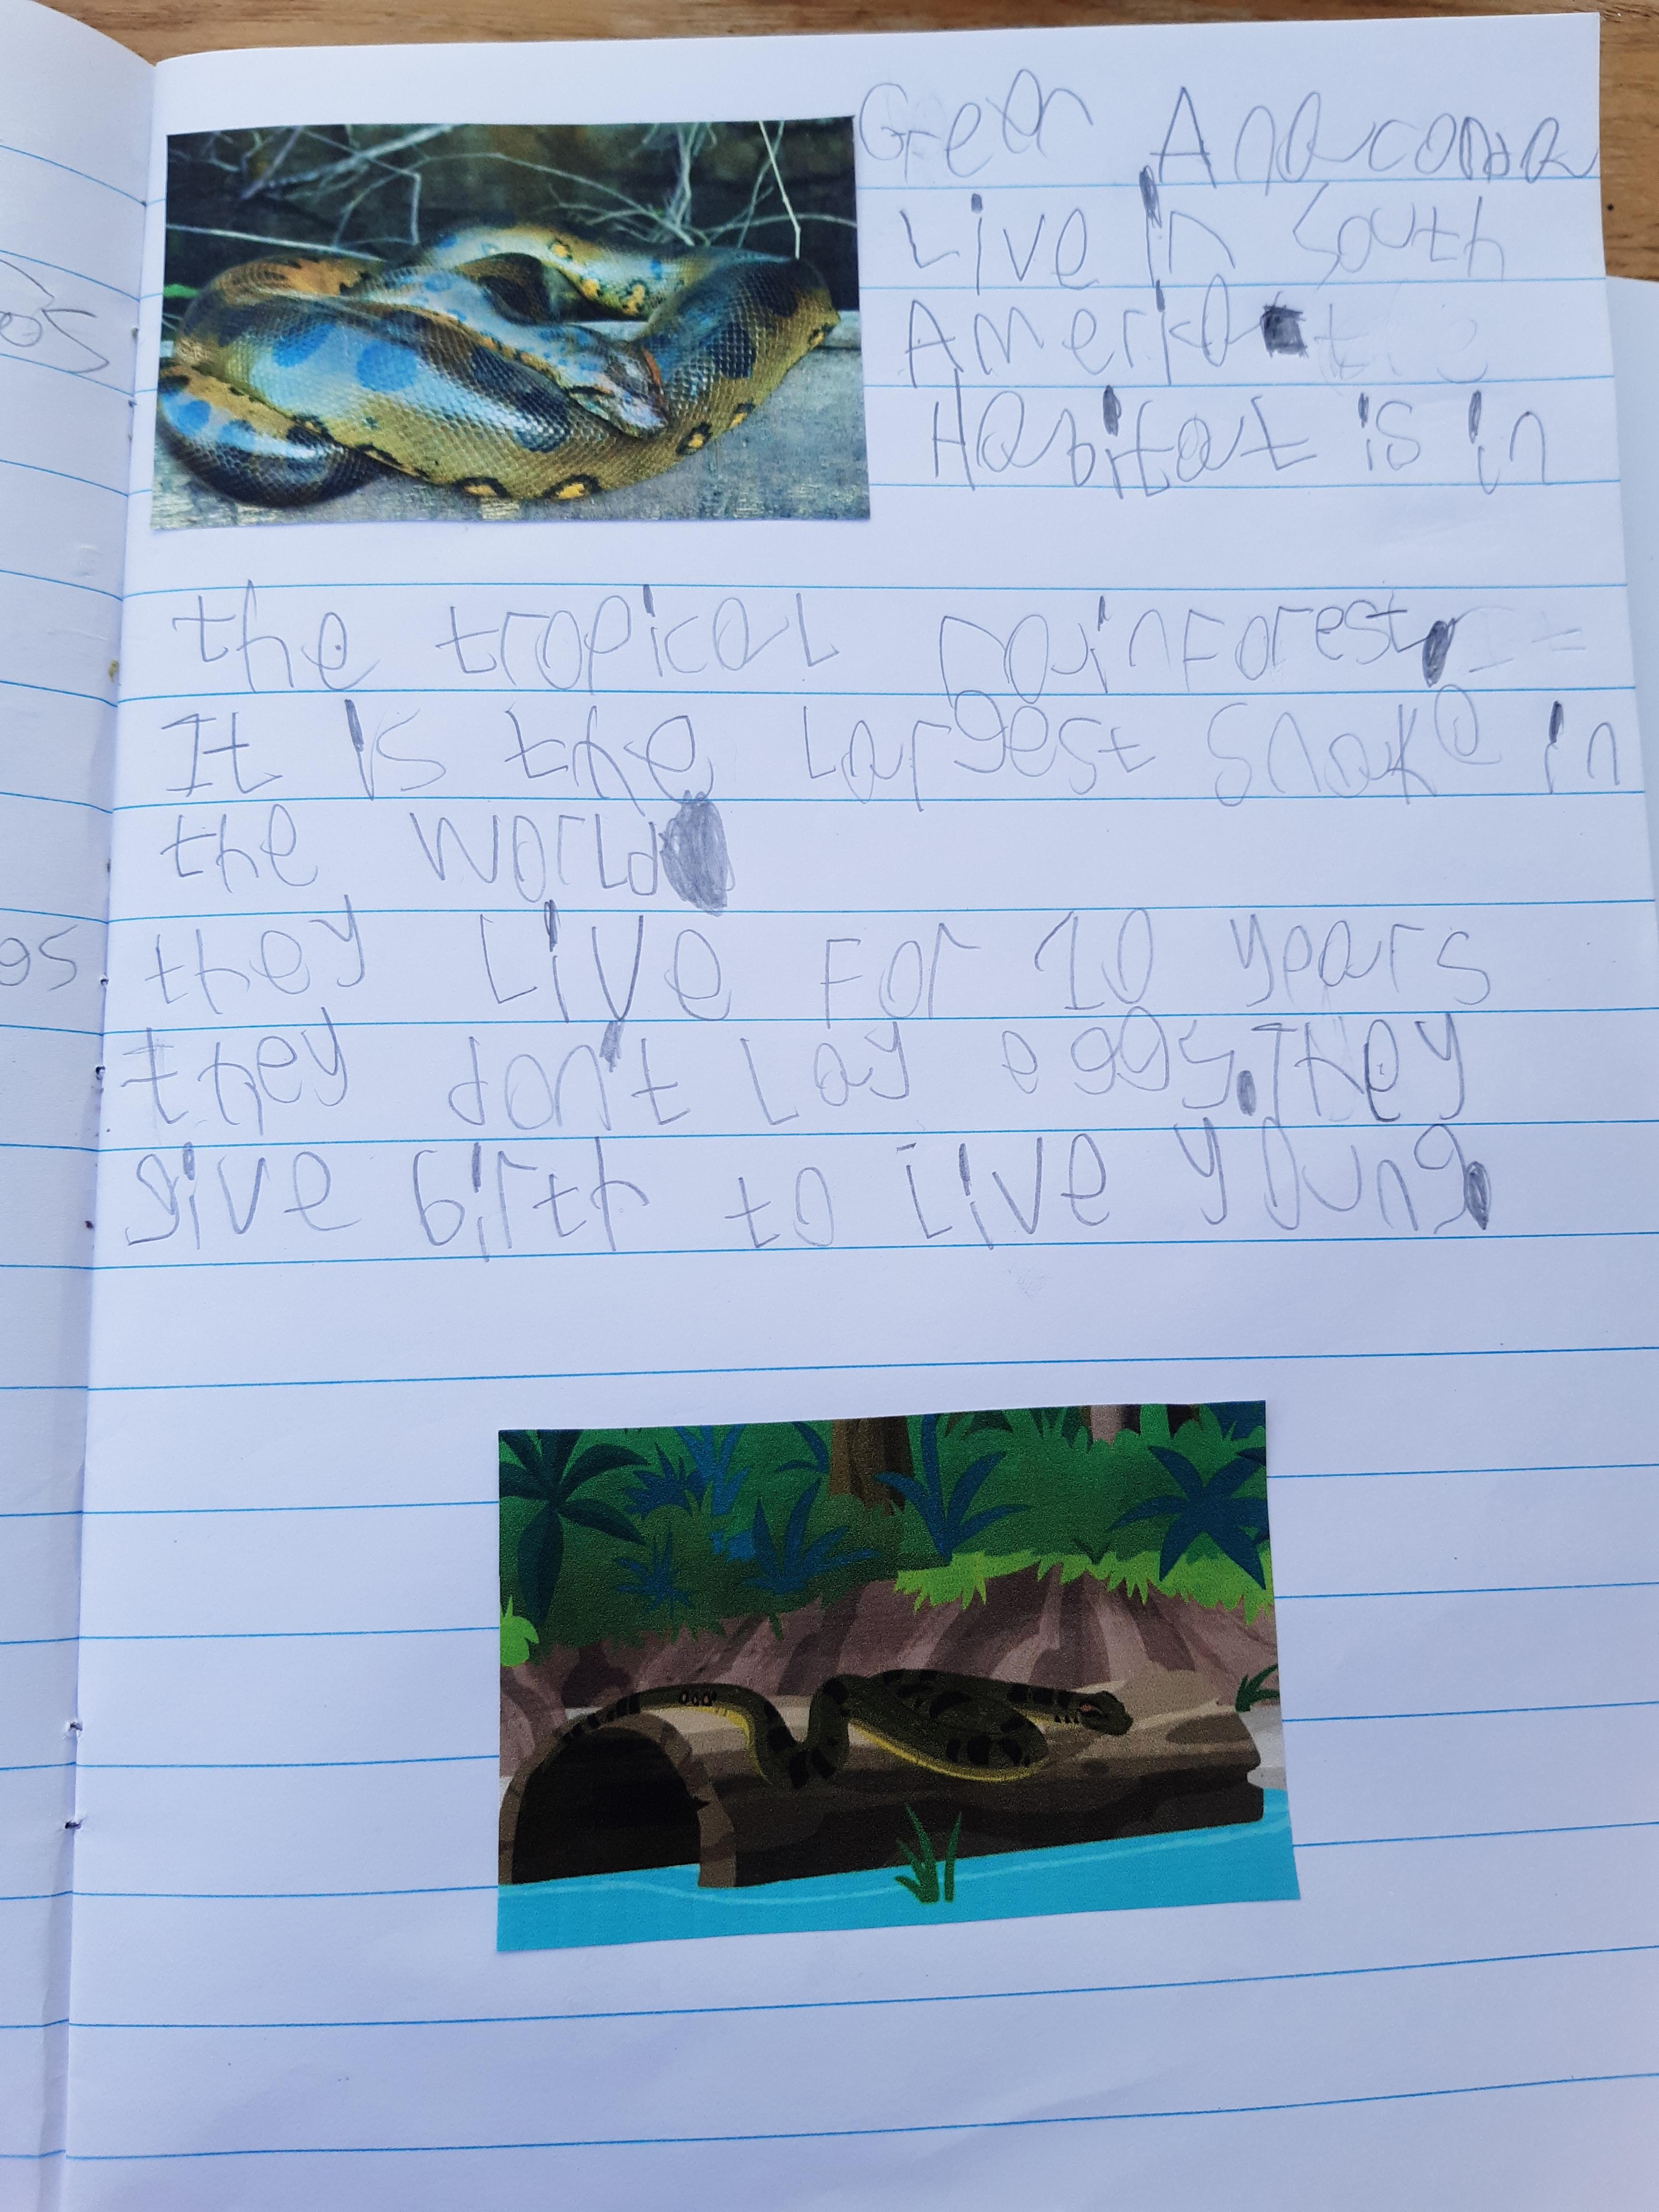 Green Anaconda
Live in South
America. the
Habitat is in
the tropical rainforest.
It is the largest snake in
the world.
they Live For 10 years
they don't Lay eggs. They
give birth to Live young.
os
es